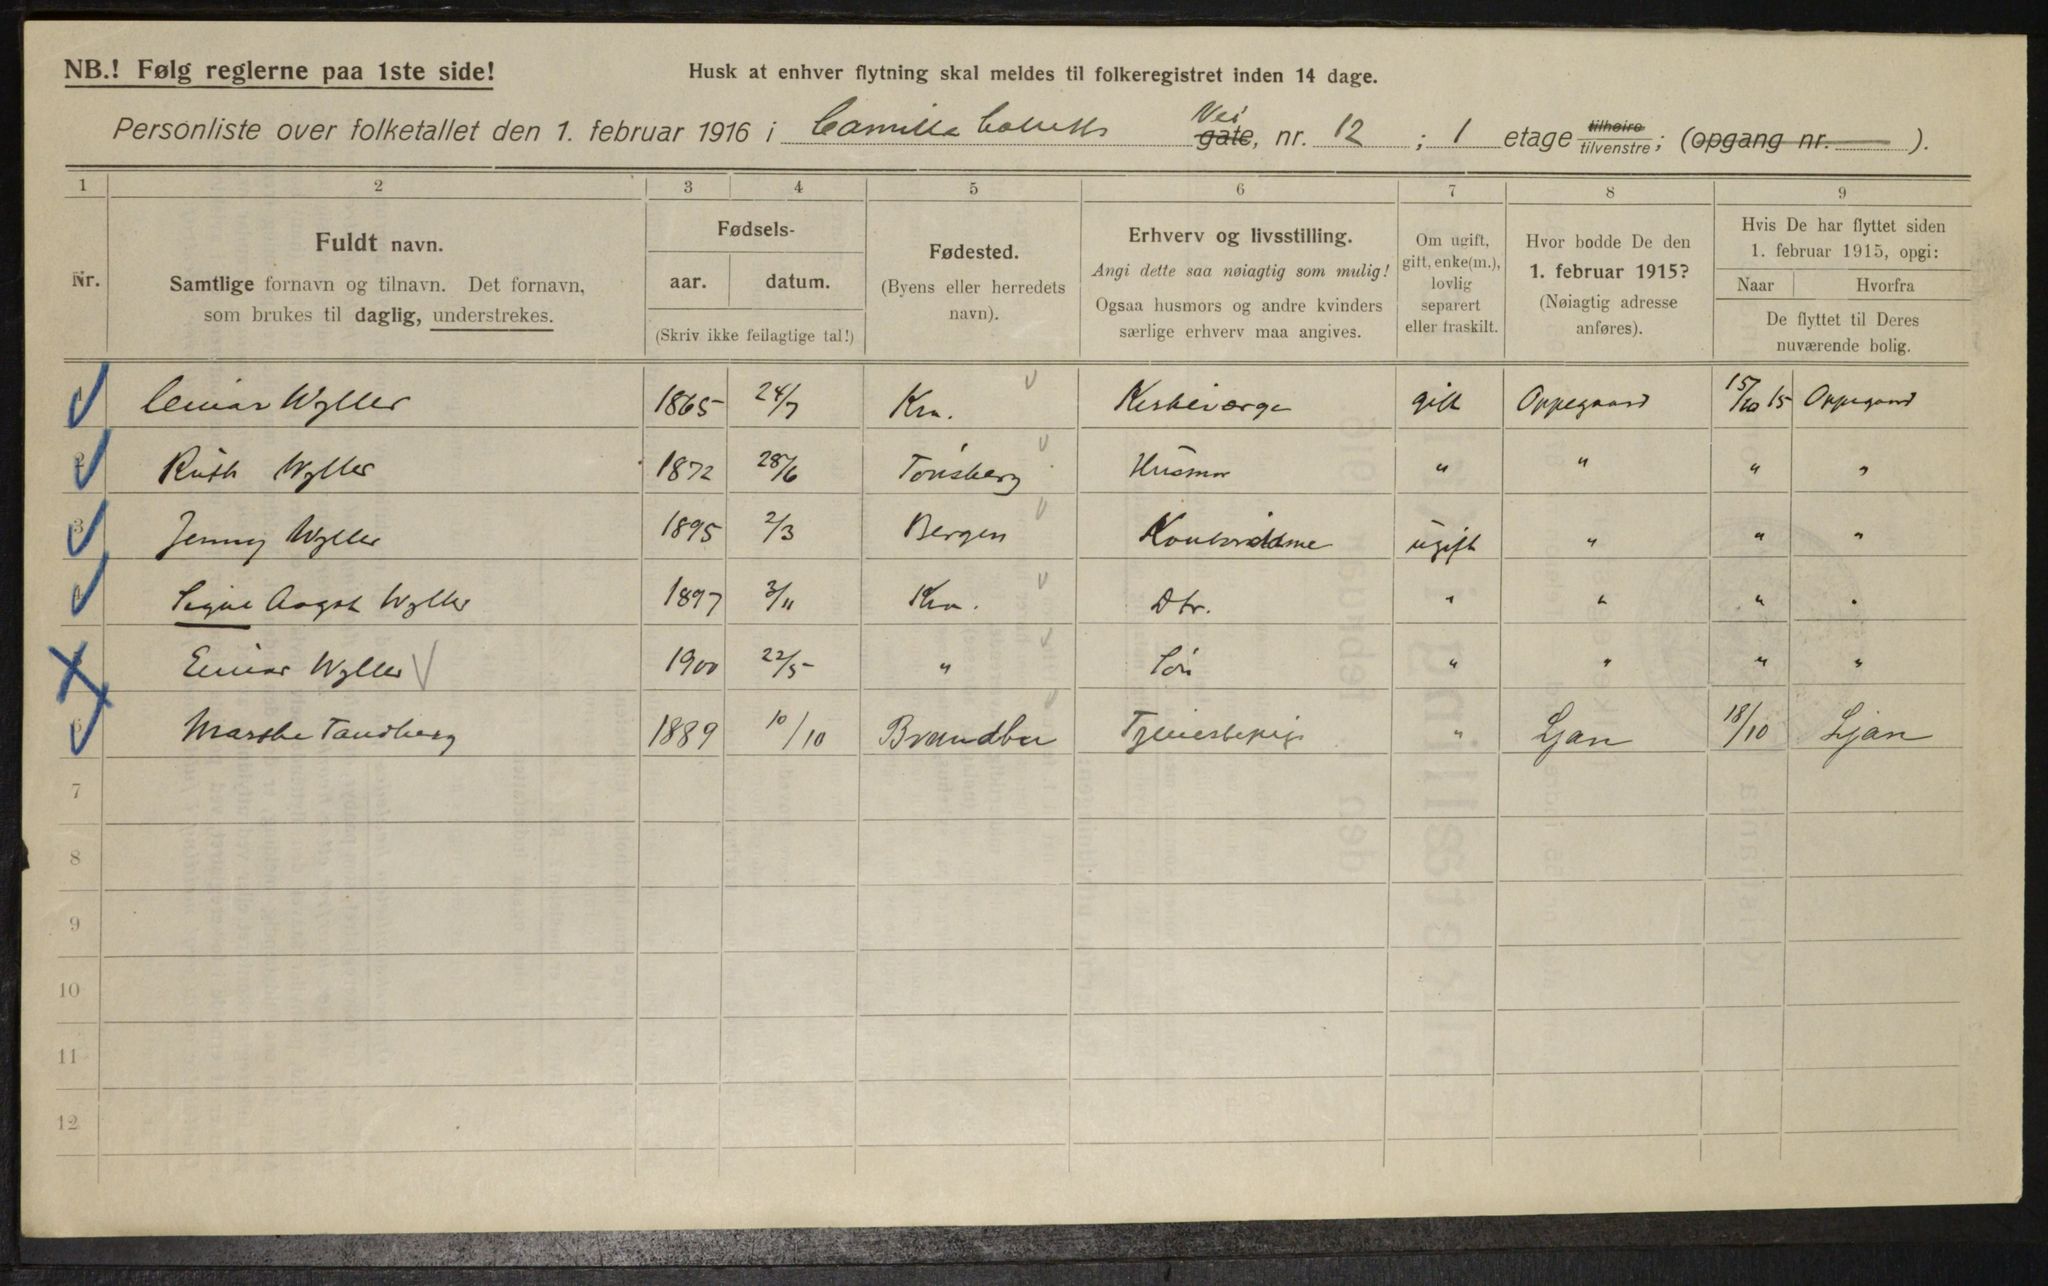 NB.! Følg reglerne paa 1ste side!
Husk at enhver flytning skal meldes til folkeregistret inden 14 dage.
Personliste over folketallet den 1. februar 1916 i Camilla Colletts gate, Vei nr. 12 ; 1 etage tilhøire tilvenstre; (opgang nr. ).
1 2 3 4 5 6 7 8 9
Nr.
Fuldt navn.
Samtlige fornavn og tilnavn. Det fornavn,
som brukes til daglig, understrekes.
Fødsels-
aar. datum.
(Skriv ikke feilagtige tal!)
Fødested.
(Byens eller herredets
navn).
Erhverv og livsstilling.
Angi dette saa nøiagtig som mulig!
Ogsaa husmors og andre kvinders
særlige erhverv maa angives.
Om ugift,
gitt, enke(m.),
lovlig
separert
eller fraskilt.
Hvor bodde De den
1. februar 1915?
(Nøiagtig adresse
anføres).
Hvis De har flyttet siden
1. februar 1915, opgi:
Naar Hvorfra
De flyttet til Deres
nuværende bolig.
Einar Wyller 1865 24/7 Kra. gift Oppegaard 15/10 15 Oppegaard
2 Ruth Wyller 1872 28/6 Tønsberg Husmor " " " "
3 Jenny Wyller 1895 2/3 Bergen Kontordame ugift " " "
Signe Aagot Wyller 1897 3/11 Kra. Dtr. " " " "
Einar Wyller 1900 22/5 " Søn " " " "
6 Marthe Tandberg 1889 10/10 Brandbu Tjenestepige " Ljan 18/10 Ljan
7
8
9
10
11
12